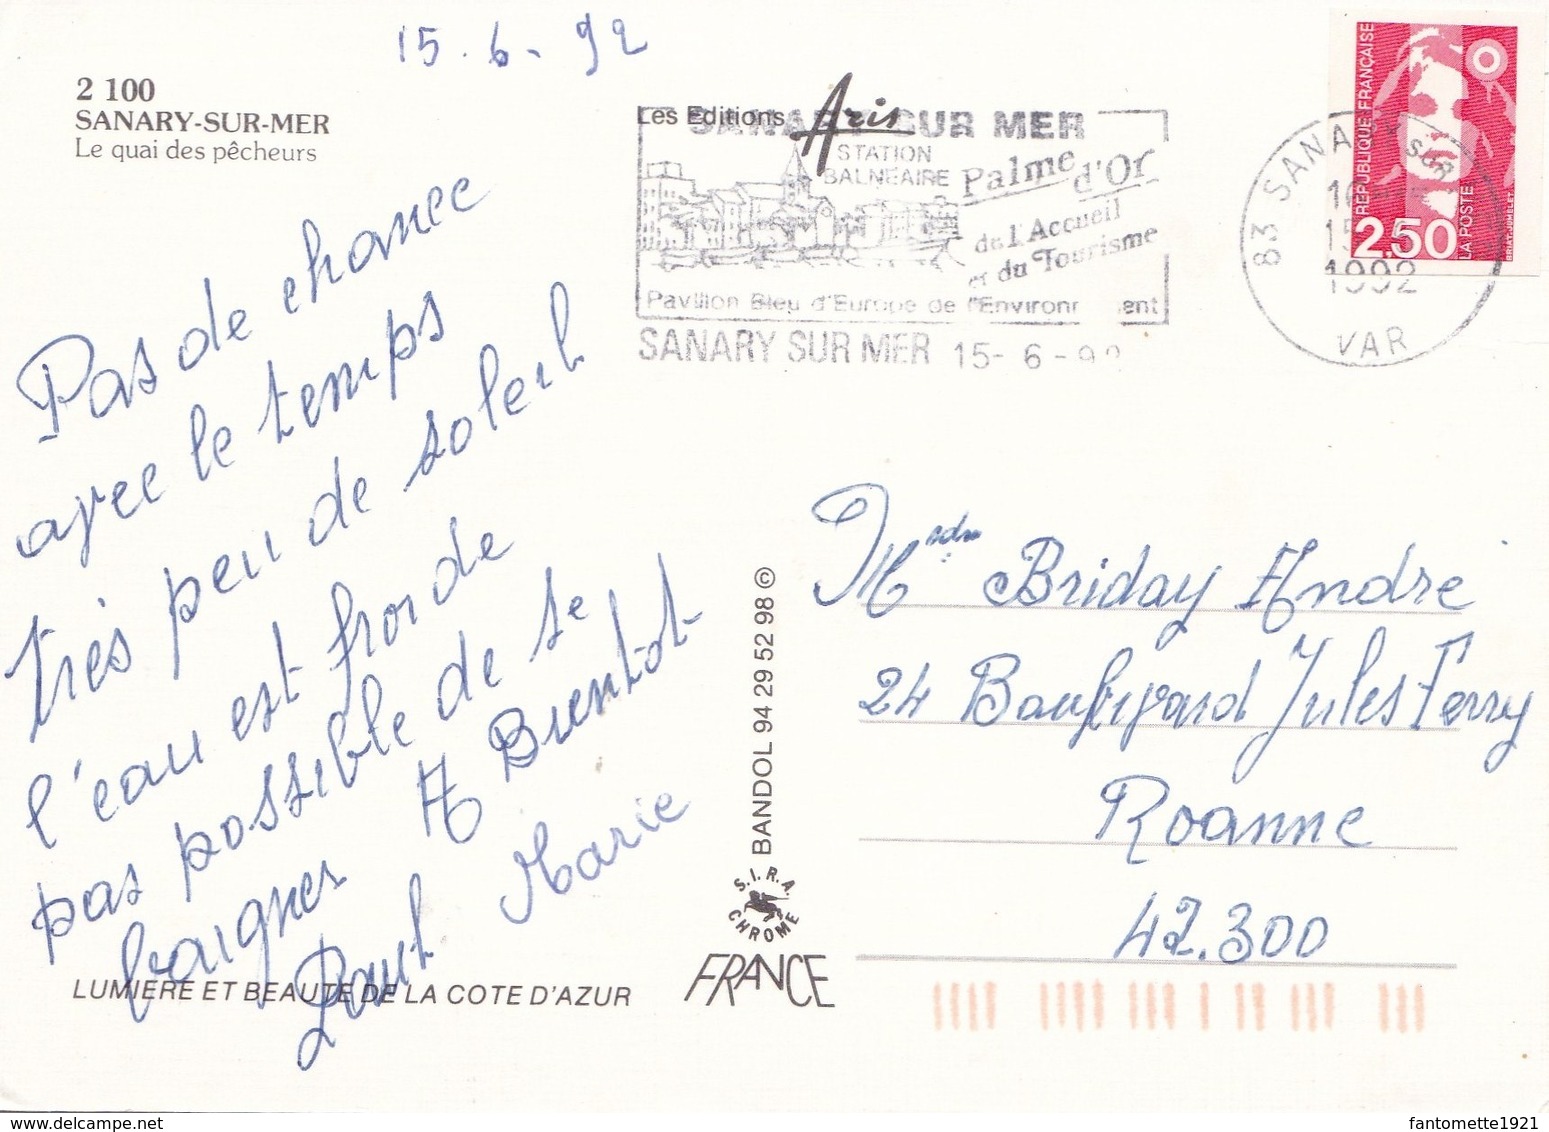 15.6-92
2 100
SANARY-SUR-MER
Le quai des pêcheurs
Les Editions Aris
SANARY SUR MER
STATION
BALNEAIRE
Palme d'Or
de l'Accueil
et du Tourisme
Pavillon Bleu d'Europe de l'Environnement
SANARY SUR MER 15- 6 -92
83 SANARY SUR
15
1992
VAR
REPUBLIQUE FRANÇAISE
2,50
LA POSTE
Pas de chance
avec le temps
très peu de soleil
l'eau est froide
pas possible de se
baigner A Bientôt
Paul Marie
Briday André
24 Boulevard Jules Ferry
Roanne
42.300
BANDOL 94 29 52 98 ©
S.I.R.A.
CHROME
FRANCE
LUMIERE ET BEAUTE DE LA COTE D'AZUR
fantomette1921